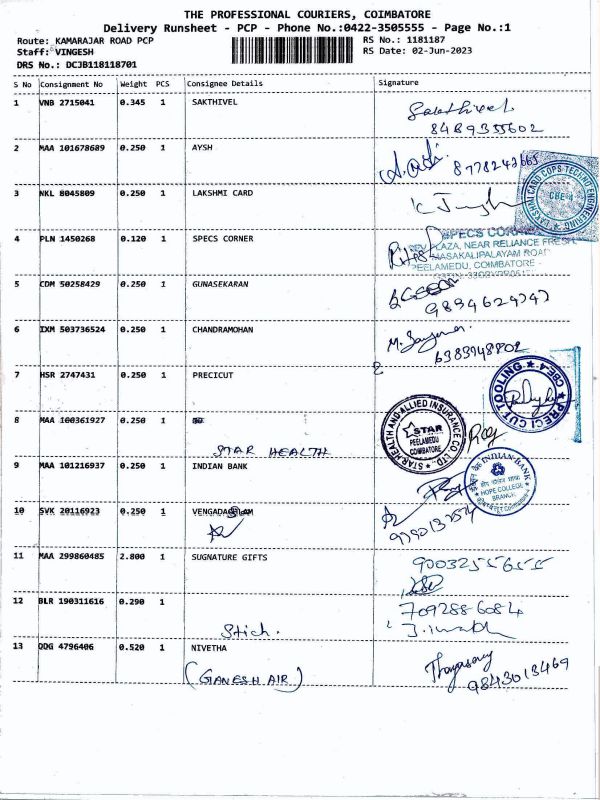 THE PROFESSIONAL COURIERS, COIMBATORE
Delivery Runsheet - PCP - Phone No.:0422-3505555 - Page No.:1
Route: KAMARAJAR ROAD PCP RS No.: 1181187
Staff: VINGESH RS Date: 02-Jun-2023
DRS No.: DCJB118118701
S No Consignment No Weight PCS Consignee Details Signature
1 VNB 2715041 0.345 1 SAKTHIVEL Sakthivel
8489355602
2 MAA 101678689 0.250 1 AYSH 8778243665
3 NKL 8045809 0.250 1 LAKSHMI CARD
LAKSHMI CARD COPS TECHNO ENGINEERING CBE-4
4 PLN 1450268 0.120 1 SPECS CORNER
SPECS CORNER
PLAZA, NEAR RELIANCE FRESH
MASAKALIPALAYAM ROAD
PEELAMEDU, COIMBATORE -
5 CDM 50258429 0.250 1 GUNASEKARAN
9894624747
6 IXM 503736524 0.250 1 CHANDRAMOHAN
6383948802
7 HSR 2747431 0.250 1 PRECICUT
PRECI CUT TOOLING CBE-4
8 MAA 100361927 0.250 1
STAR HEALTH
STAR HEALTH AND ALLIED INSURANCE CO. LTD.
STAR
PEELAMEDU
COIMBATORE
Roy
9 MAA 101216937 0.250 1 INDIAN BANK
INDIAN BANK
HOPE COLLEGE
BRANCH
10 SVK 20116923 0.250 1
11 MAA 299860485 2.800 1 SUGNATURE GIFTS 9003255655
12 BLR 190311616 0.290 1 7092886084
Stich.
13 QDG 4796406 0.520 1 NIVETHA
(GANESH AIR) 9843013469